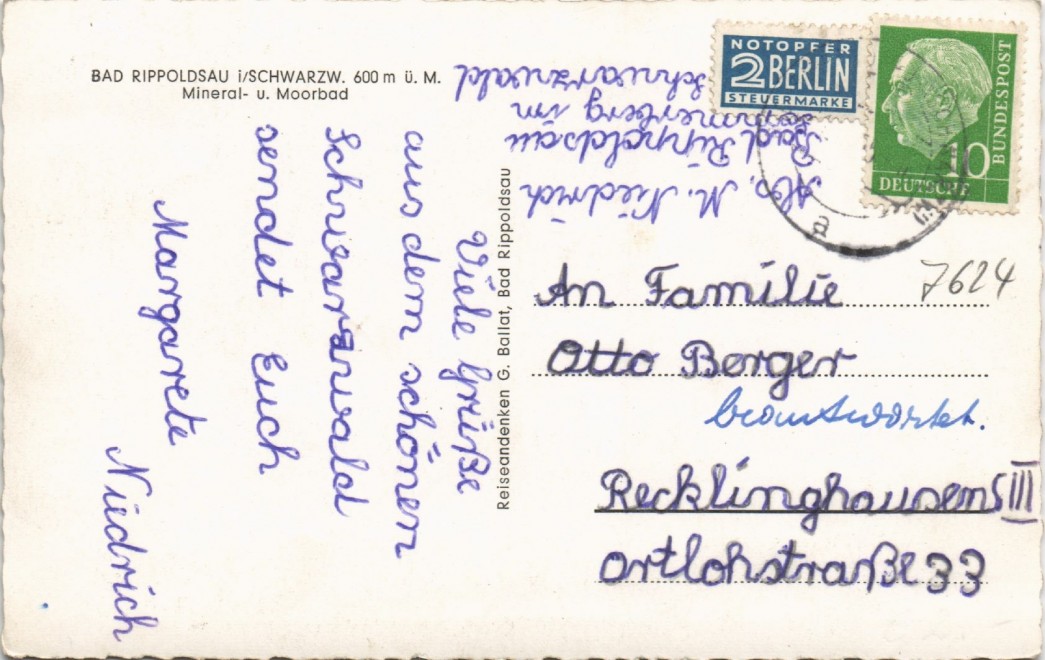 BAD RIPPOLDSAU i/SCHWARZW. 600 m ü. M.
Mineral- u. Moorbad
Viele Grüße
aus dem schönen
Schwarzwald
sendet Euch
Margarete
Niedrich
Reiseandenken G. Ballat, Bad Rippoldsau
Abs. M. Niedrich
Bad Rippoldsau
im
Schwarzwald
NOTOPFER
2 BERLIN
STEUERMARKE
DEUTSCHE
BUNDESPOST
10
a
7624
An Familie
Otto Berger
beantwortet.
Recklinghausen S III
Ortlohstraße 33